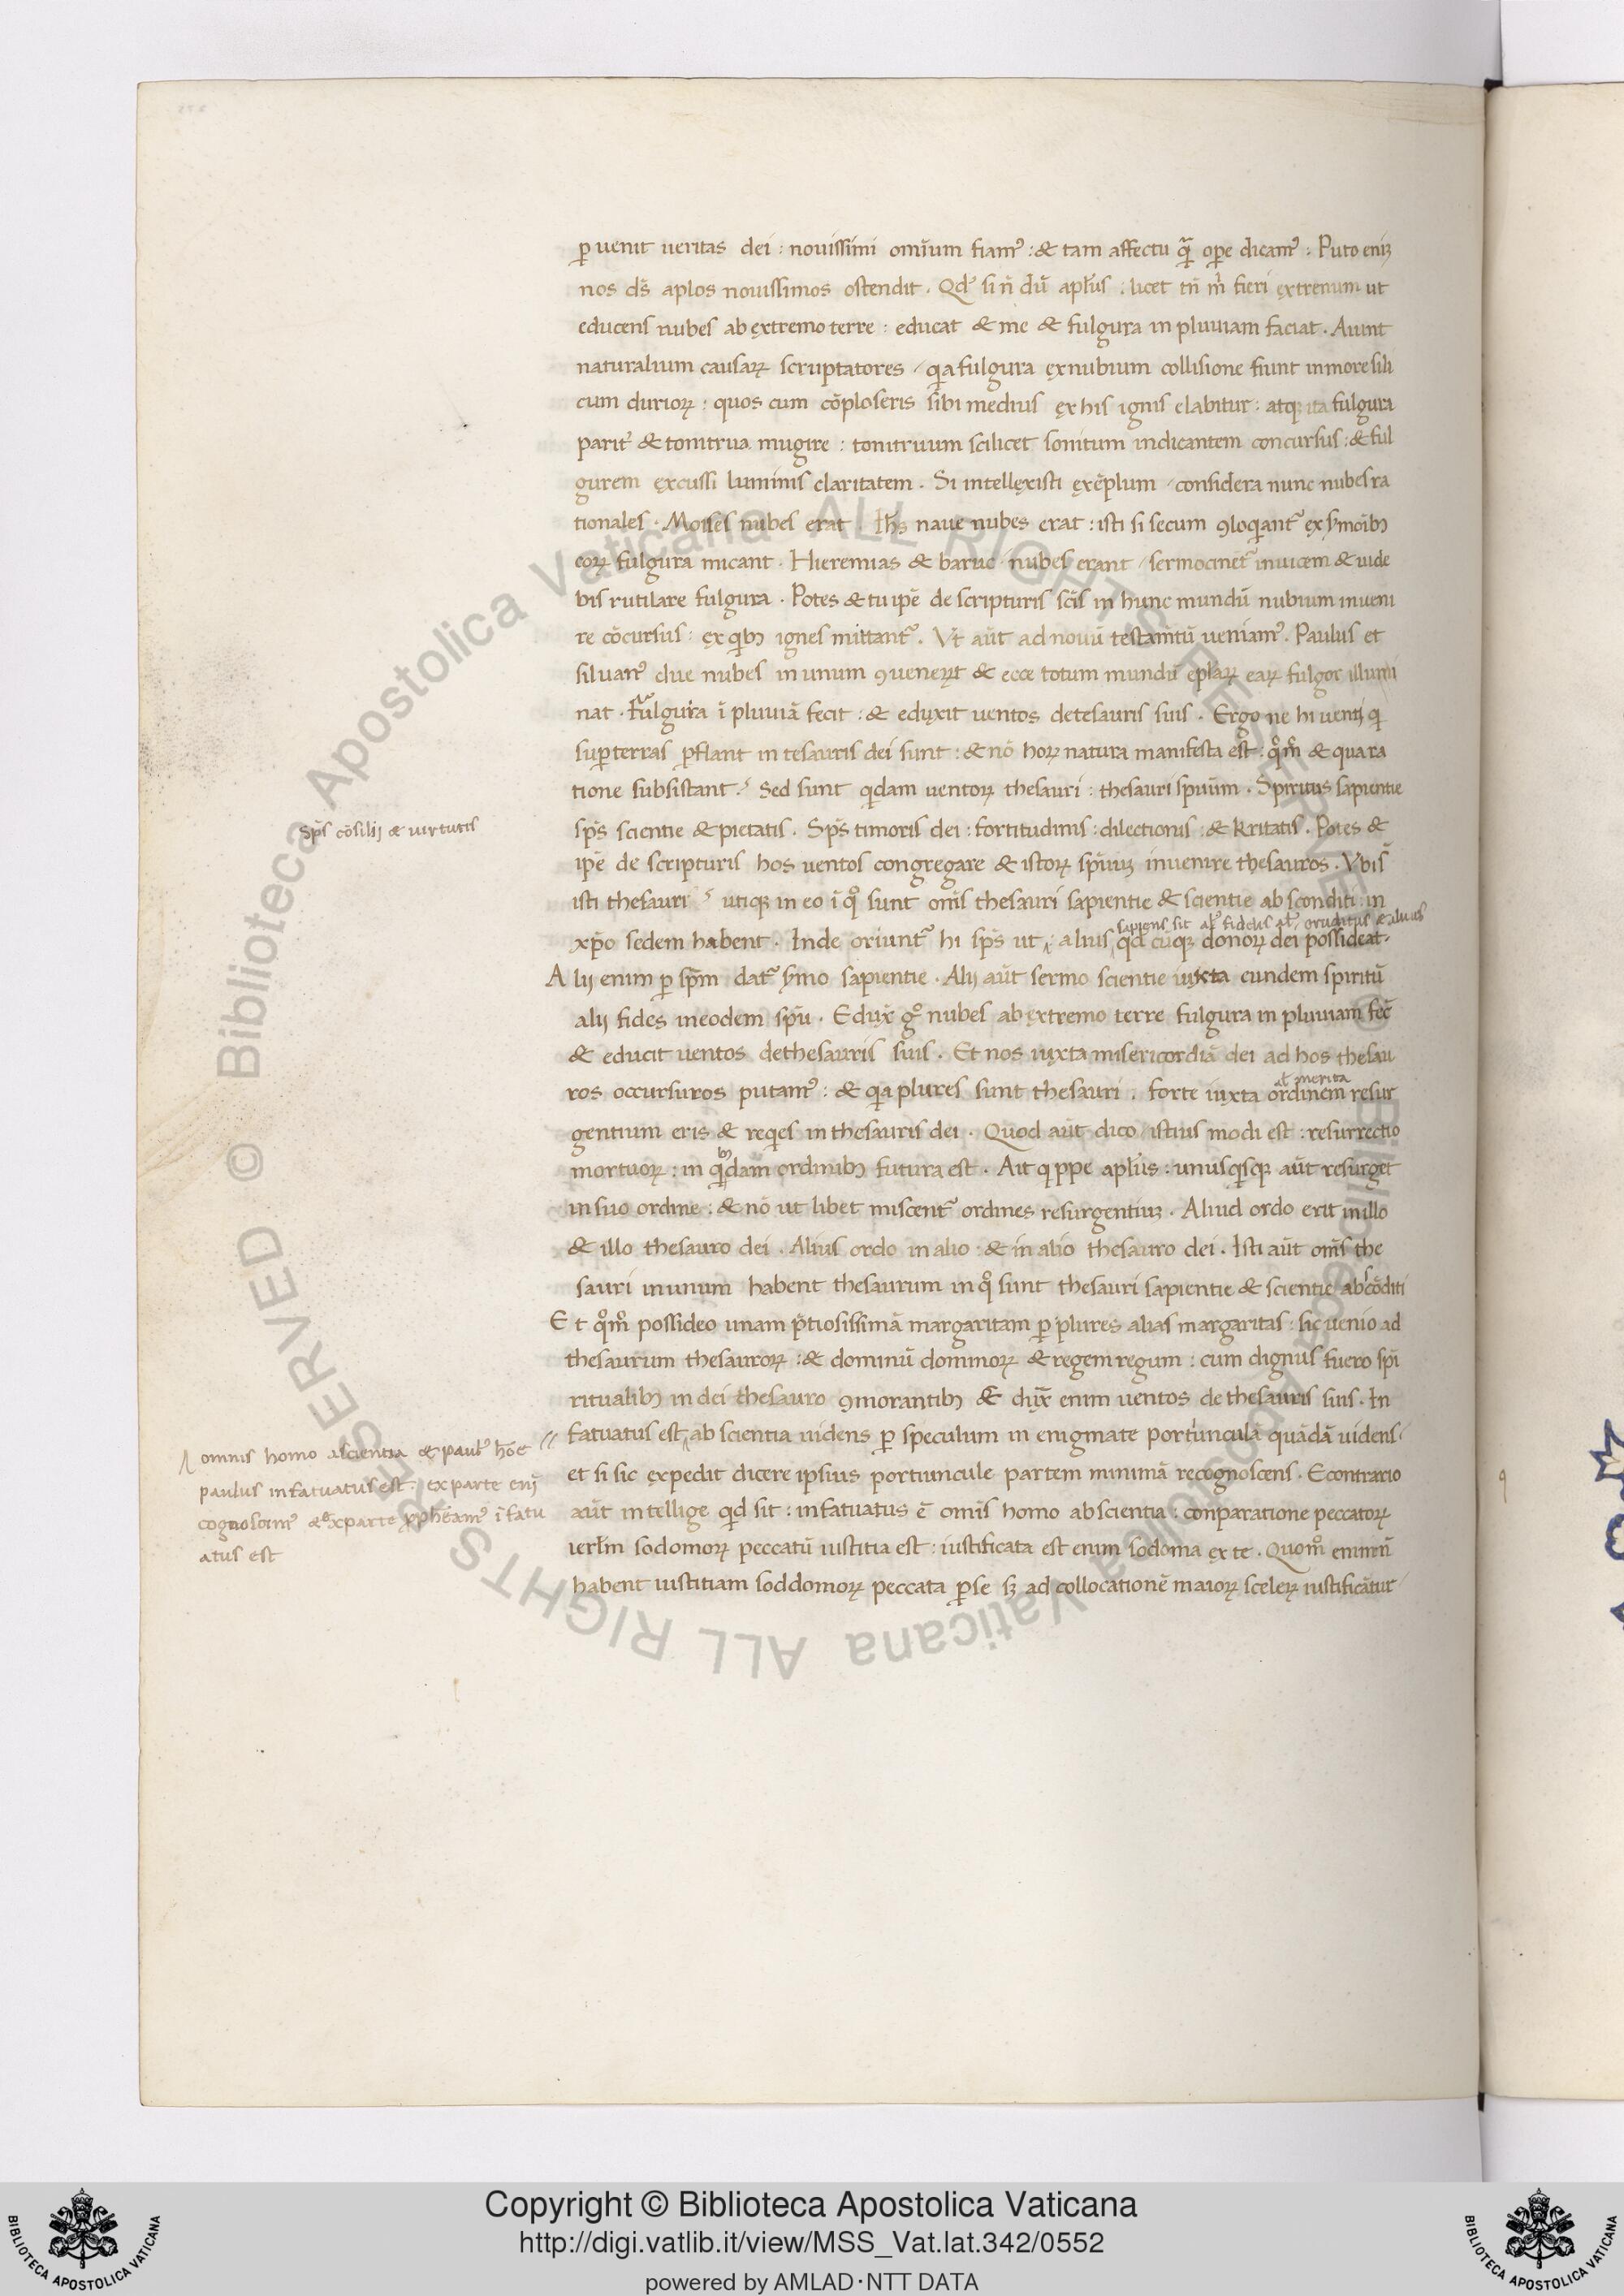 ꝑuenit ueritas dei : nouissimi omĩum fiamꝰ : & tam affectu q̃ ope dicamꝰ : Puto eniꝫ
nos ds̃ aplos nouissimos ostendit . Qđ si ñ dũ apl̃us : licet tñ m̃ fieri ęxtremum ut
educens nubes ab ęxtremo terre : educat & me & fulgura in pluuiam faciat . Aiunt
naturalium causaꝝ scruptatores / qia fulgura ęx nubium collisione fiunt in more sili
cum durioꝝ : quos cum cõploseris sibi medius ęx his ignis elabitur : atqꝫ ita fulgura
paritꝰ & tonitrua mugire : tonitruum scilicet sonitum indicantem concursus : & ful
gurem ęxcussi luminis claritatem . Si intellęxisti ęxẽplum / considera nunc nubes ra
tionales . Moises nubes erat . Ihs̃ naue nubes erat : isti si secum ꝯloqiantꝰ ęx s̃moĩbꝫ
eoꝝ fulgura micant . Hieremias & baruc nubes erant / sermocinẽtꝰ inuicem & uide
bis rutilare fulgura . Potes & tu ipẽ de scripturis scĩs in hunc mundũ nubium inueni
re cõcursus : ęx qibꝫ ignes mittantꝰ . Vt aũt ad nouũ testam̃tũ ueniamꝰ . Paulus et
siluanꝰ due nubes in unum ꝯuener̃t & ecce totum mundũ ep̃laꝝ eaꝝ fulgor illumi
nat . Fulgura ĩ pluuiã fecit : & eduxit uentos de tesauris suis . Ergo ne hi uentj qi
suꝑ terras ꝑflant in tesauris dei sunt : & nõ hoꝝ natura manifesta est : qõm̃ & qua ra
tione subsistant ? Sed sunt qidam uentoꝝ thesauri : thesauri spũum . Spiritus sapientie
sp̃s scientie & pietatis . Sp̃s timoris dei : fortitudinis : dilectionis : & kritatis . Potes &
Sp̃s cõsilij & uirtutis
ipẽ de scripturis hos uentos congregare & istoꝝ sp̃uũ inuenire thesauros . Vbi s̃
isti thesauri ? utiqꝫ in eo ĩ qo sunt om̃s thesauri sapientie & scientie absconditi : in
sapiens sit alꝰ fidelis alꝰ eruditus & alius
xp̃o sedem habent . Inde oriuntꝰ hi sp̃s ut alius qd cũqꝫ donoꝝ dei possideat .
Alij enim ꝑ sp̃m datꝰ s̃mo sapientie . Alij aũt sermo scientie iuxta eundem spiritũ
alij fides in eodem sp̃u . Edux̃ go nubes ab ęxtremo terre fulgura in pluuiam fec̃
& educit uentos de thesauris suis . Et nos iuxta misericordiã dei ad hos thesau
ros occursuros putamꝰ : & qia plures sunt thesauri . forte iuxta ordinem resur
al merita
gentium eris & reqies in thesauris dei . Quod aũt dico istius modi est : resurrectio
mortuoꝝ : in qibꝫdam ordinibꝫ futura est . Ait qippe apl̃us : unusqisqꝫ aũt resurget
in suo ordine : & nõ ut libet miscentꝰ ordines resurgentiuꝫ . Aliud ordo erit in illo
& illo thesauro dei . Alius ordo in alio : & in alio thesauro dei . Isti aũt om̃s the
sauri in unum habent thesaurum in qo sunt thesauri sapientie & scientie abscõditi
Et qõm̃ possideo unam p̃tiosissimã margaritam ꝑ plures alias margaritas : sic uenio ad
thesaurum thesauroꝝ : & dominũ dominoꝝ & regem regum : cum dignus fuero spi
ritualibꝫ in dei thesauro ꝯmorantibꝫ & dux̃ enim uentos de thesauris suis . In
fatuatus est ab scientia uidens ꝑ speculum in enigmate portiunculã quãdã uidens .
omnis homo a scientia & paulꝰ hõe
paulus infatuatus est . ex parte enĩ
cognoscimꝰ & ex parte ꝓphetamꝰ ĩfatu
atus est
et si sic ęxpedit dicere ipsius portiuncule partem minimã recognoscens . Econtrario
aũt intellige qid sit : infatuatus ẽ omĩs homo ab scientia : conparatione peccatoꝝ
ierl̃m sodomoꝝ peccatũ iustitia est : iustificata est enim sodoma ęx te . Quom̃o enim ñ
habent iustitiam soddomoꝝ peccata ꝑ se sꝫ ad collocationẽ maioꝝ sceleꝝ iustificãtur
Copyright © Biblioteca Apostolica Vaticana
http://digi.vatlib.it/view/MSS_Vat.lat.342/0552
powered by AMLAD·NTT DATA
BIBLIOTECA APOSTOLICA VATICANA
BIBLIOTECA APOSTOLICA VATICANA
© Biblioteca Apostolica Vaticana ALL RIGHTS RESERVED © Biblioteca Apostolica Vaticana ALL RIGHTS RESERVED